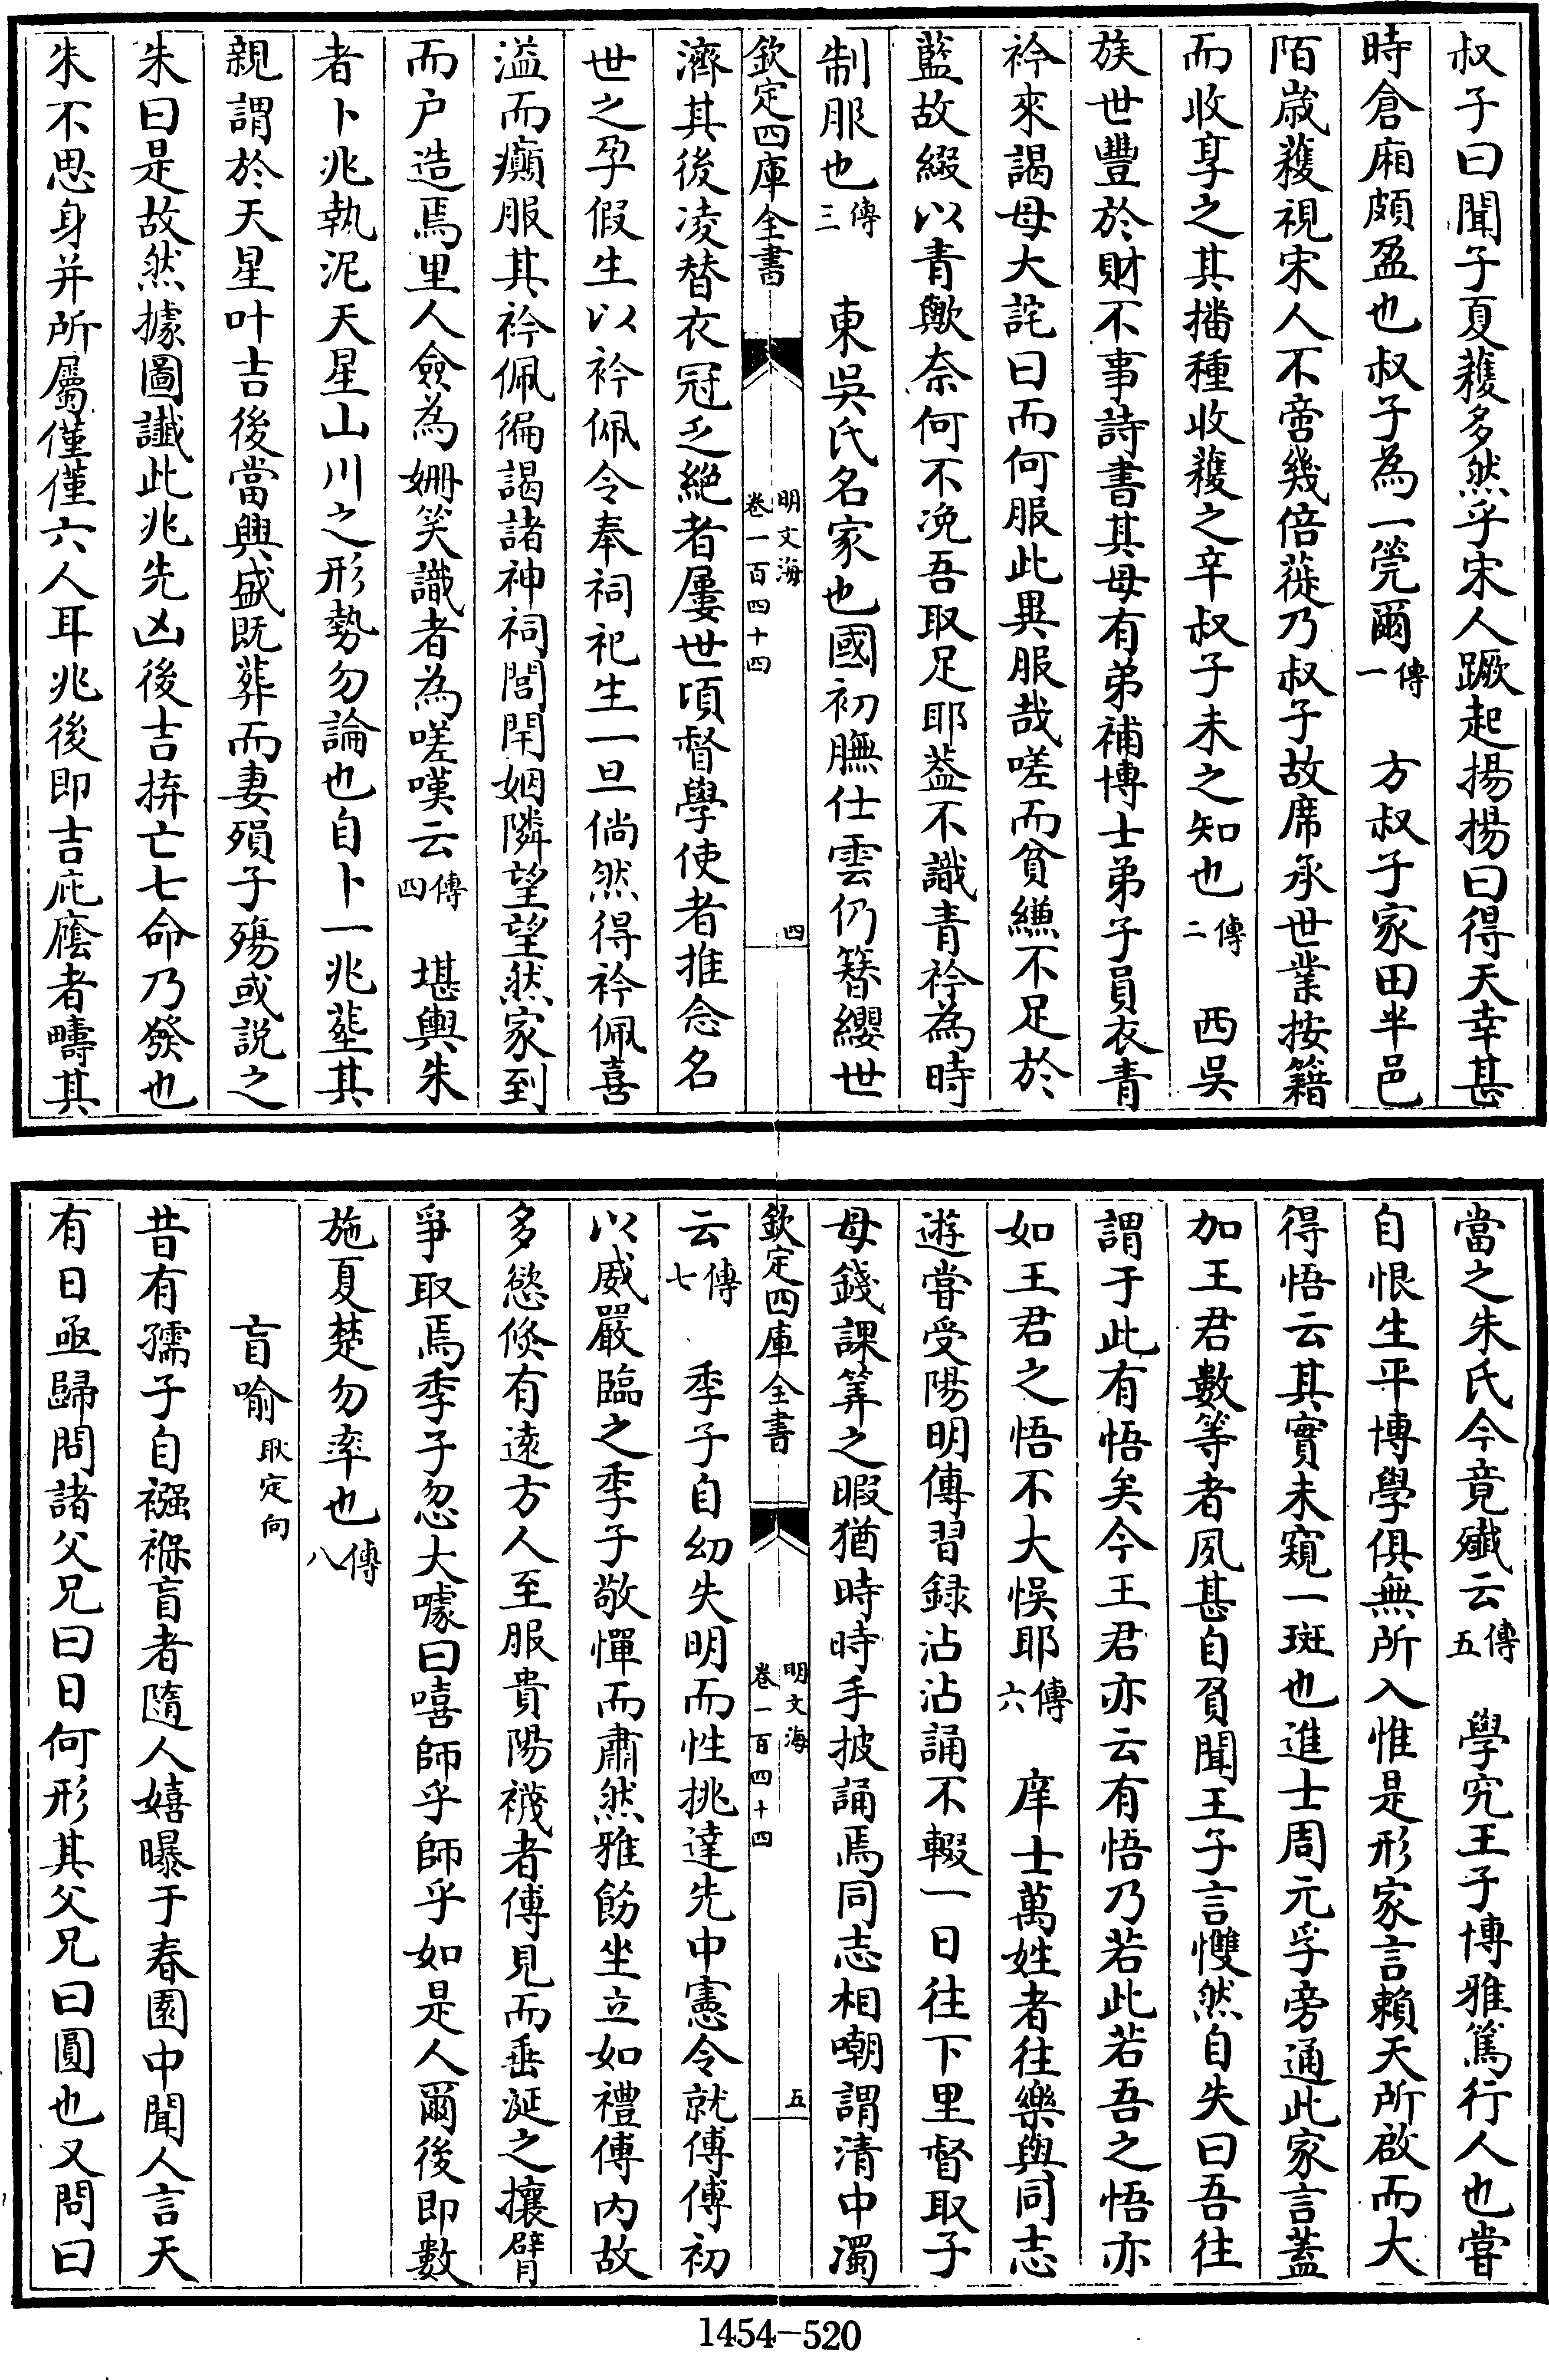 叔子曰聞子夏穫多然乎宋人蹶起揚揚曰得天幸甚
時倉廂頗盈也叔子為一筦爾傳一　方叔子家田半邑
陌歲穫視宋人不啻幾倍蓰乃叔子故席承世業按籍
而收享之其播種收穫之辛叔子未之知也傳二　西吳
族世豐於財不事詩書其母有弟補博士弟子員衣青
衿來謁母大詫曰而何服此異服哉嗟而貧縑不足於
藍故綴以青歟奈何不浼吾取足耶葢不識青衿為時
制服也傳三　東吳氏名家也國初膴仕雲仍簪纓世
欽定四庫全書　明文海卷一百四十四　四
濟其後凌替衣冠乏絕者屢世頃督學使者推念名
世之孕假生以衿佩令奉祠祀生一旦倘然得衿佩喜
溢而癲服其衿佩徧謁諸神祠閭閈姻隣望望然家到
而户造焉里人僉為姍笑識者為嗟嘆云傳四　堪輿朱
者卜兆執泥天星山川之形勢勿論也自卜一兆塟其
親謂於天星叶吉後當興盛既葬而妻殞子殤或説之
朱曰是故然據圖讖此兆先凶後吉拚亡七命乃發也
朱不思身并所屬僅僅六人耳兆後即吉庇廕者疇其
當之朱氏今竟殲云傳五　學究王子博雅篤行人也嘗
自恨生平博學俱無所入惟是形家言賴天所啟而大
得悟云其實未窺一斑也進士周元孚旁通此家言蓋
加王君數等者夙甚自負聞王子言戄然自失曰吾往
謂于此有悟矣今王君亦云有悟乃若此若吾之悟亦
如王君之悟不大悞耶傳六　庠士萬姓者往樂與同志
遊嘗受陽明傳習録沾沾誦不輟一日往下里督取子
母錢課筭之暇猶時時手披誦焉同志相嘲謂清中濁
欽定四庫全書　明文海卷一百四十四　五
云傳七　季子自幼失明而性挑達先中憲令就傅傅初
以威嚴臨之季子敬憚而肅然雅飭坐立如禮傅內故
多慾倐有逺方人至服貴陽襪者傅見而垂涎之攘臂
爭取焉季子忽大噱曰嘻師乎師乎如是人爾後即數
施夏楚勿率也傳八
盲喻　耿定向
昔有孺子自襁褓盲者隨人嬉曝于春園中聞人言天
有日亟歸問諸父兄曰日何形其父兄曰圓也又問曰
1454—520